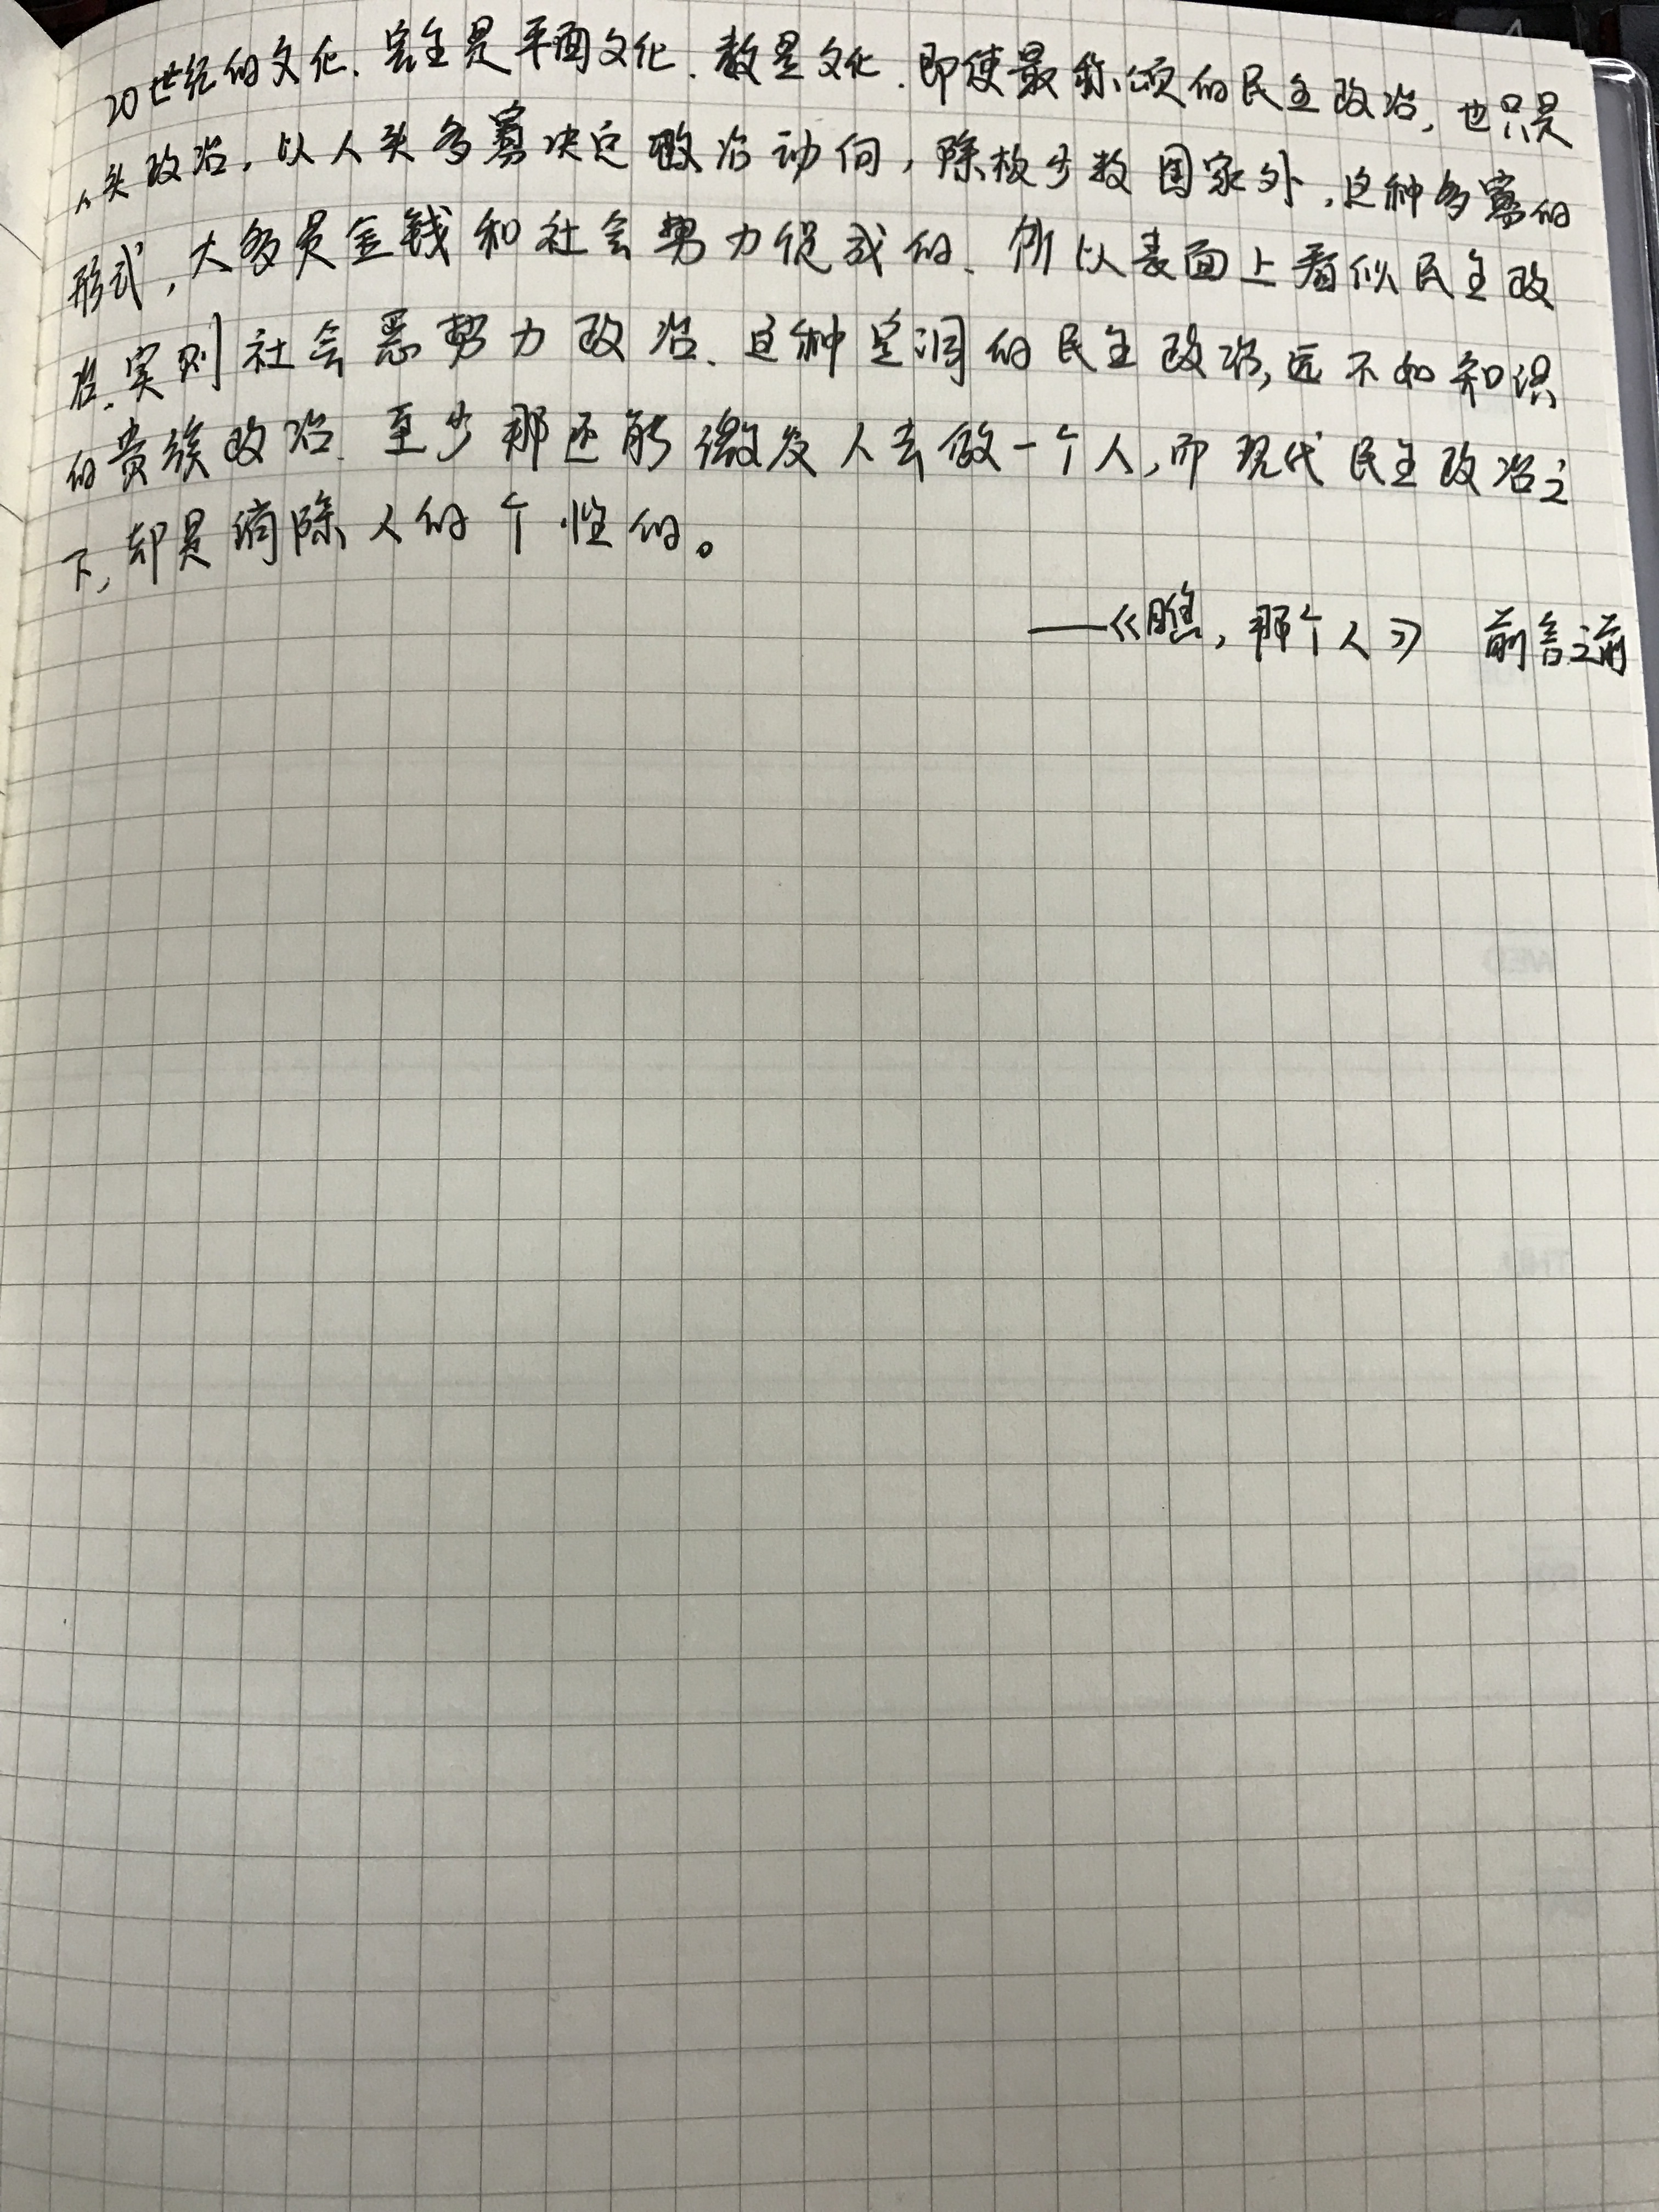 20世纪的文化、完全是平面文化、数量文化.即使最称颂的民主政治,也只是
人头政治,以人头多寡决定政治动向,除极少数国家外,这种多寡的
形式,大多是金钱和社会势力促成的、所以表面上看似民主政
治、实则社会恶势力政治、这种空洞的民主政治,远不如知识
的贵族政治.至少那还能激发人去做一个人,而现代民主政治之
下,却是消除人的个性的。
——《瞧,那个人》 前言之前